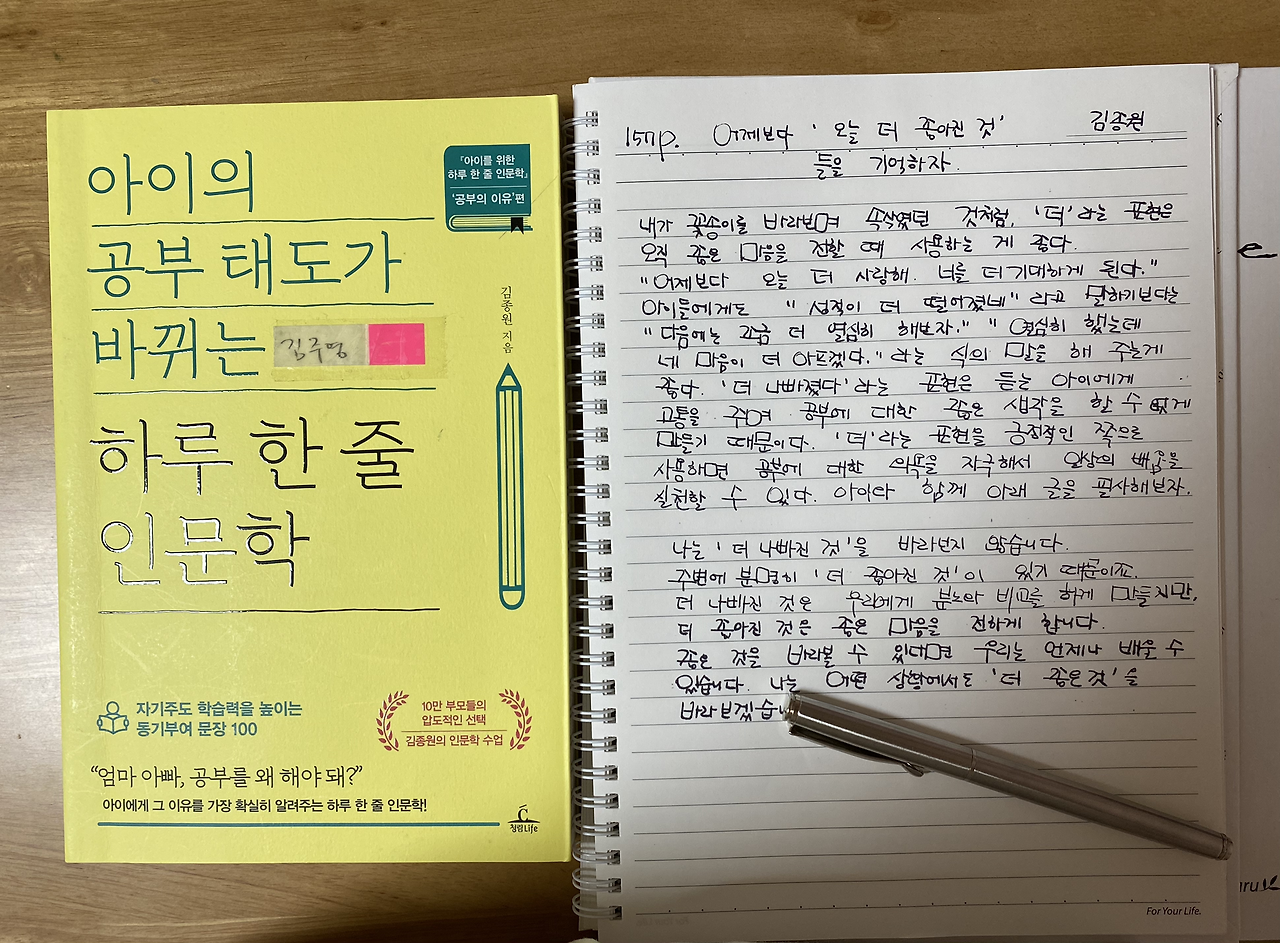 아이의
공부 태도가
바뀌는
김주영
하루 한 줄
인문학
「아이를 위한
하루 한 줄 인문학」
'공부의 이유'편
김종원 지음
자기주도 학습력을 높이는
동기부여 문장 100
10만 부모들의
압도적인 선택
김종원의 인문학 수업
"엄마 아빠, 공부를 왜 해야 돼?"
아이에게 그 이유를 가장 확실히 알려주는 하루 한 줄 인문학!
청림Life
157p. 어제보다 '오늘 더 좋아진 것' 김종원
들을 기억하자.
내가 꽃송이를 바라보며 속삭였던 것처럼, '더'라는 표현은
오직 좋은 마음을 전할 때 사용하는 게 좋다.
"어제보다 오늘 더 사랑해. 너를 더 기대하게 된다."
아이들에게도 "성적이 더 떨어졌네" 라고 말하기보다는
"다음에는 조금 더 열심히 해보자." "열심히 했는데
네 마음이 더 아프겠다." 라는 식의 말을 해 주는게
좋다. '더 나빠졌다'라는 표현은 듣는 아이에게
고통을 주며 공부에 대한 좋은 생각을 할 수 없게
만들기 때문이다. '더'라는 표현을 긍정적인 쪽으로
사용하면 공부에 대한 의욕을 자극해서 일상의 배움을
실천할 수 있다. 아이와 함께 아래 글을 필사해보자.
나는 '더 나빠진 것'을 바라보지 않습니다.
주변에 분명히 '더 좋아진 것'이 있기 때문이죠.
더 나빠진 것은 우리에게 분노와 비교를 하게 만들지만,
더 좋아진 것은 좋은 마음을 전하게 합니다.
좋은 것을 바라볼 수 있다면 우리는 언제나 배울 수
있습니다. 나는 어떤 상황에서도 '더 좋은 것'을
바라보겠습니
For Your Life.